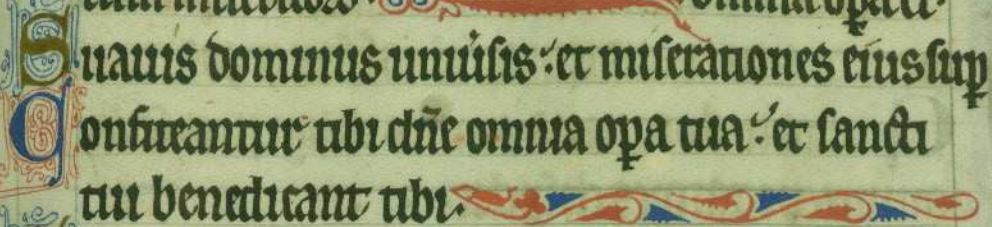 omnia oꝑa ei⹎
Suauis dominus uniu̾sis: et miserationes eius suꝑ
Confiteantur tibi dn̄e omnia oꝑa tua: et sancti
tui benedicant tibi.